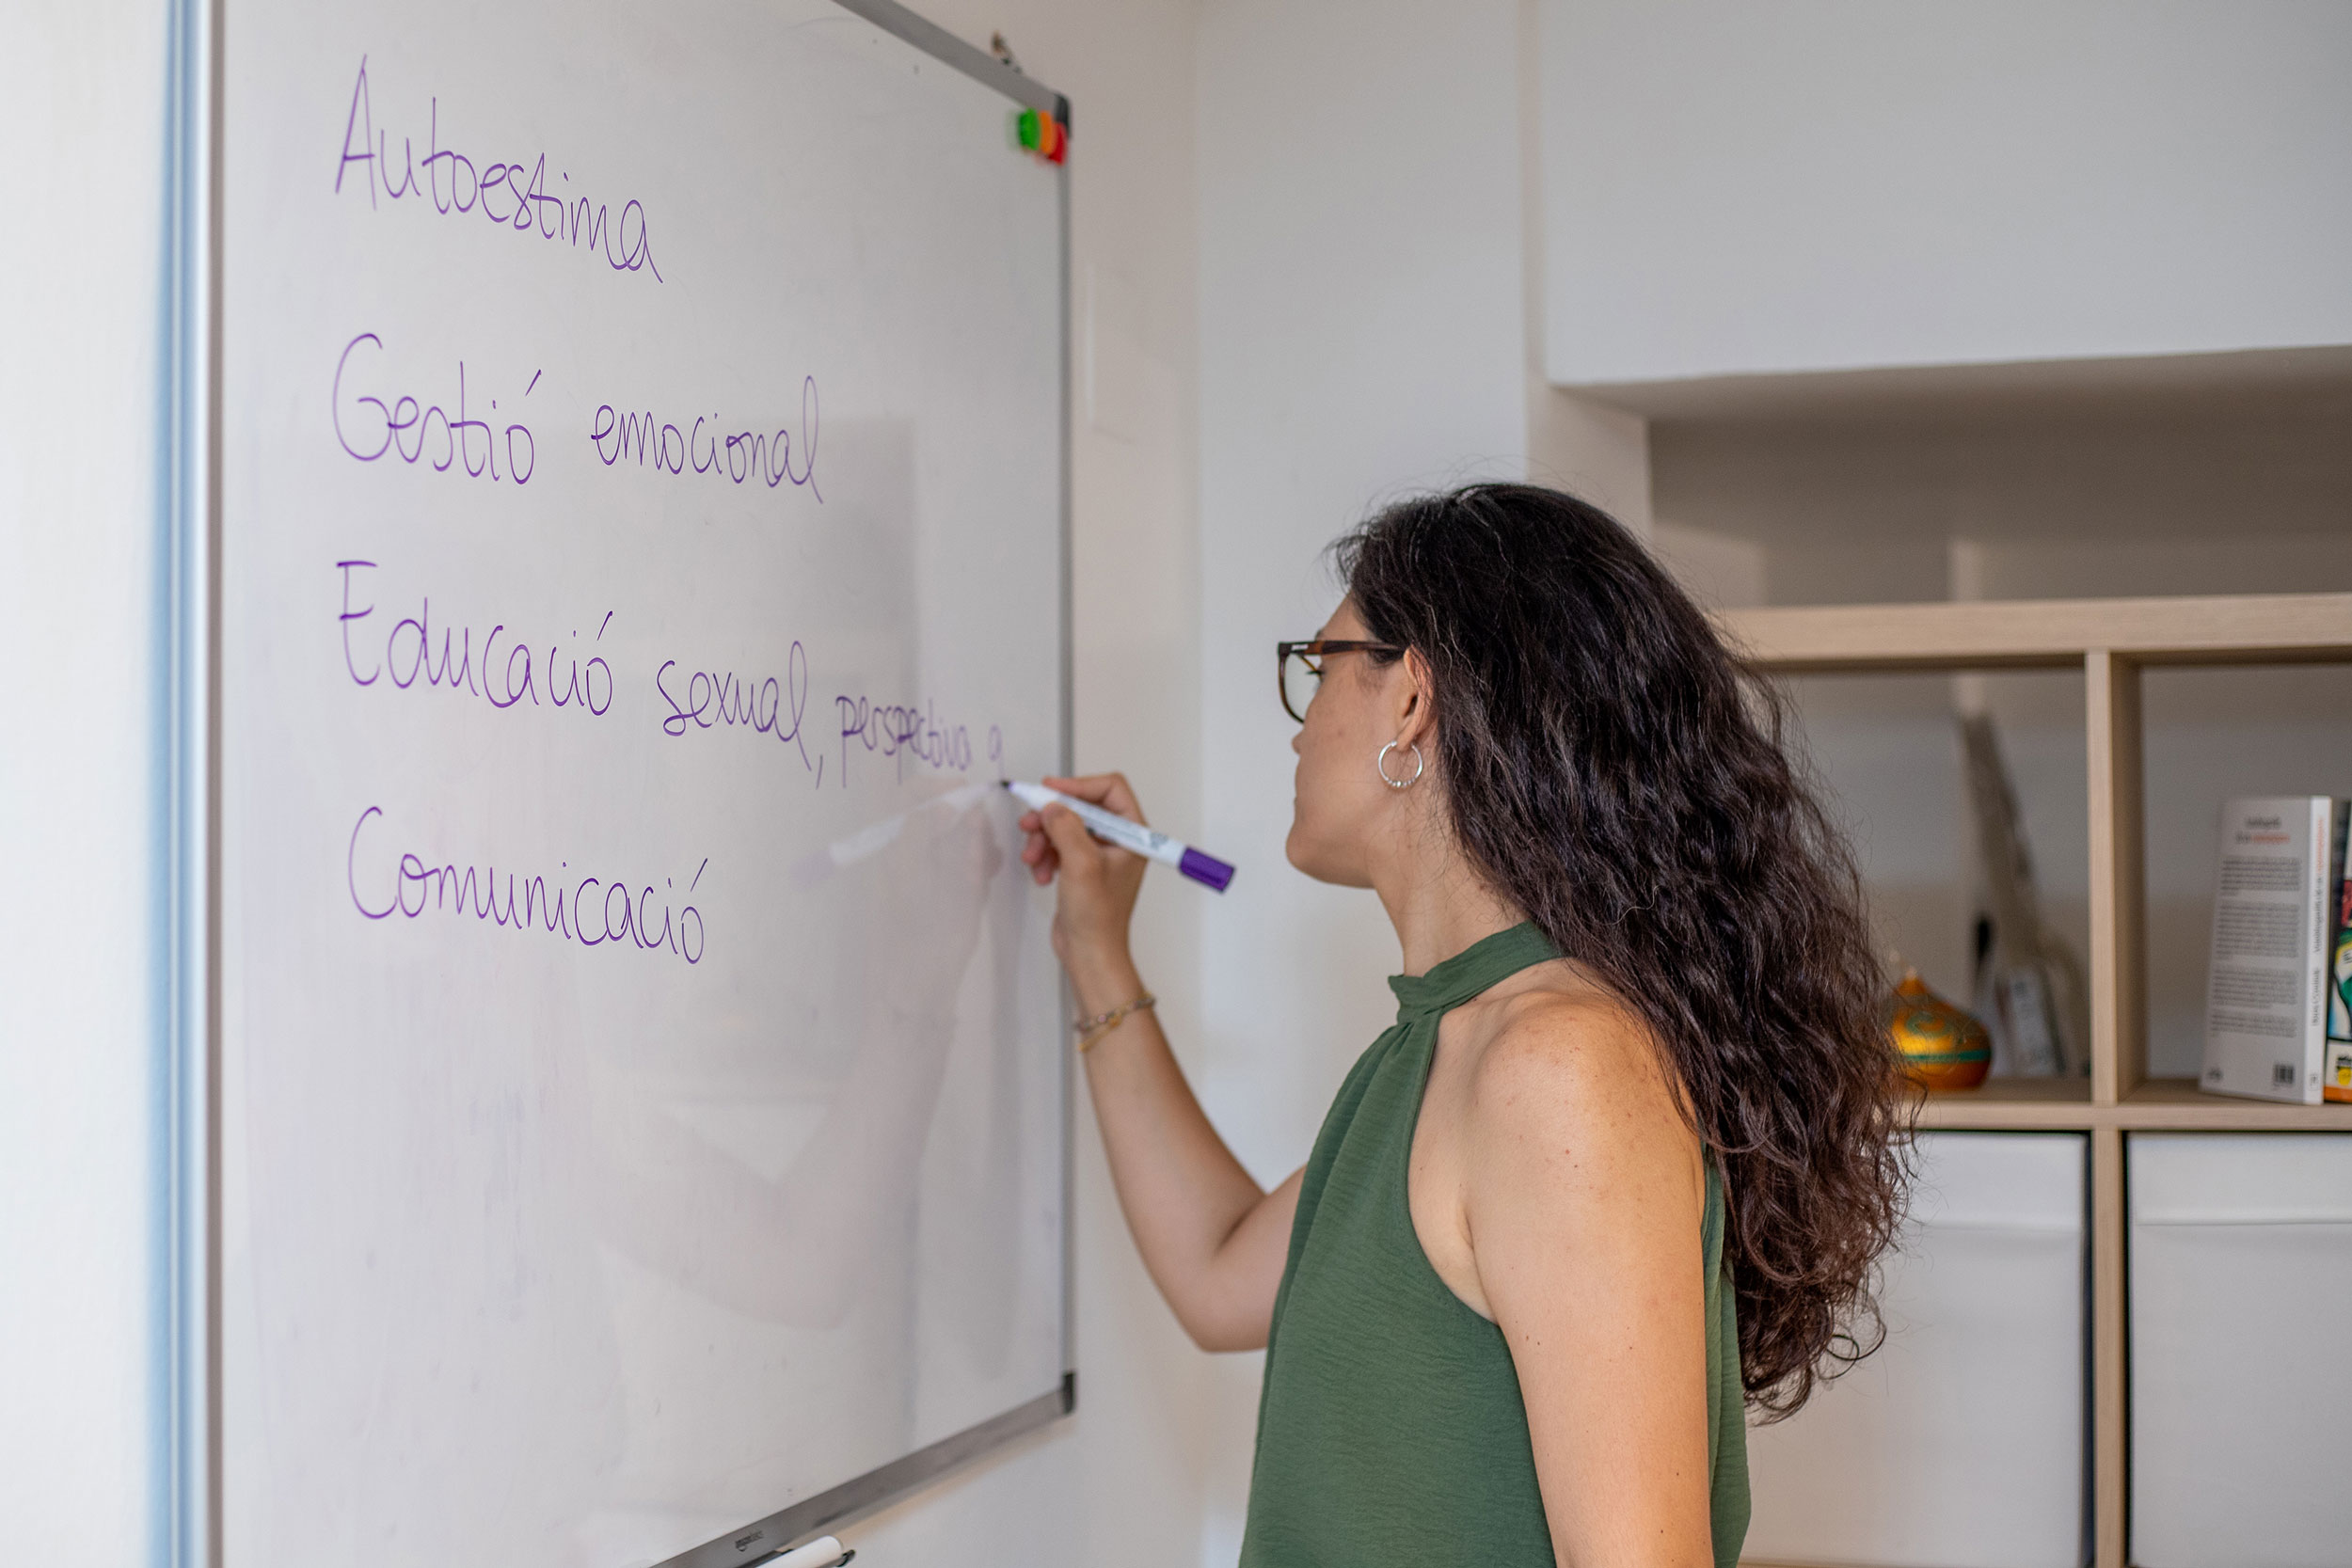 Autoestima
Gestió emocional
Educació sexual, perspectiva g
Comunicació